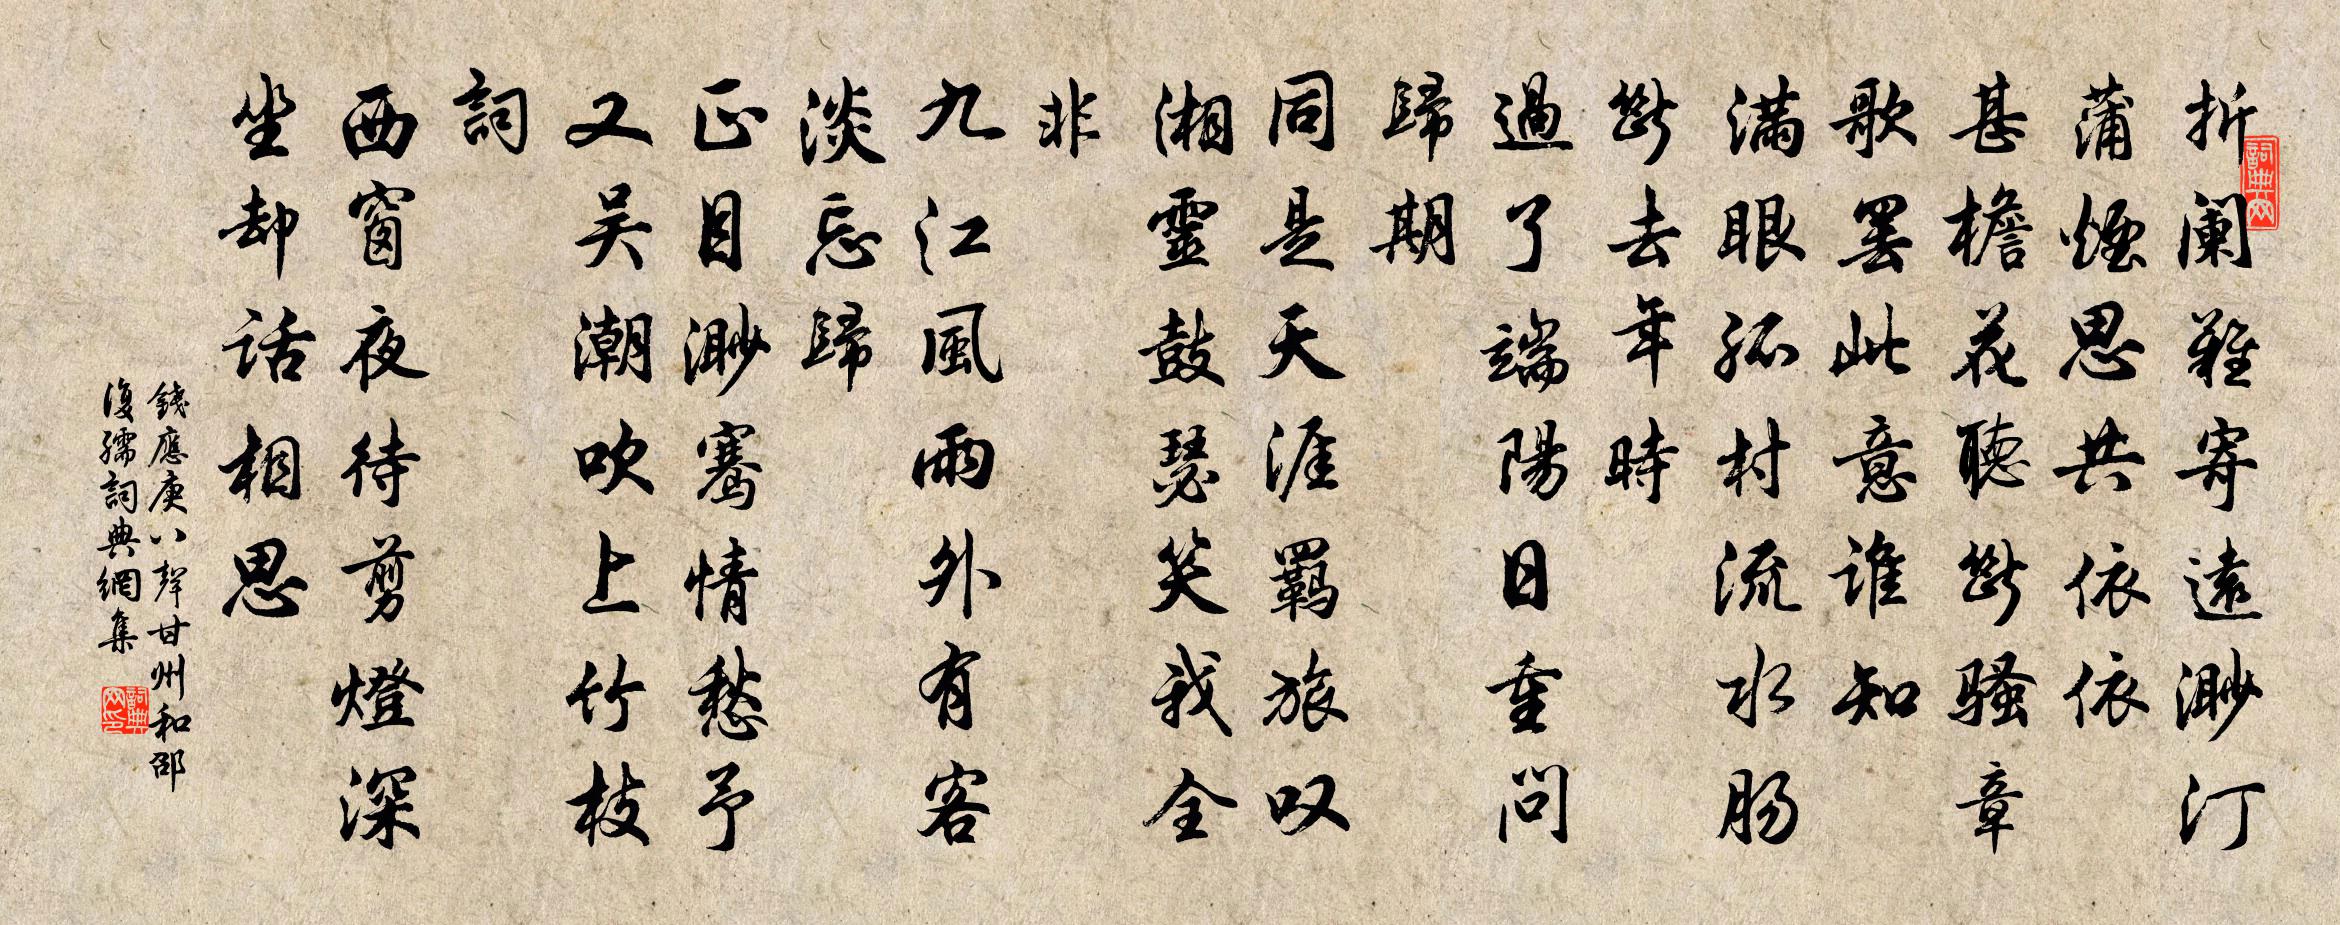 折阑難寄遠渺汀
蒲煙思共依依
甚檐花聽斷騷章
歌罢此意誰知
滿眼孤村流水肠
斷去年時
過了端陽日重問
歸期
同是天涯羈旅叹
湘靈鼓瑟笑我全
非
九江風雨外有客
淡忘歸
正目渺騫情愁予
又吴潮吹上竹枝
詞
西窗夜待剪燈深
坐却話相思
錢應庚八聲甘州和邵
復孺詞典網集
詞典网
詞典网印